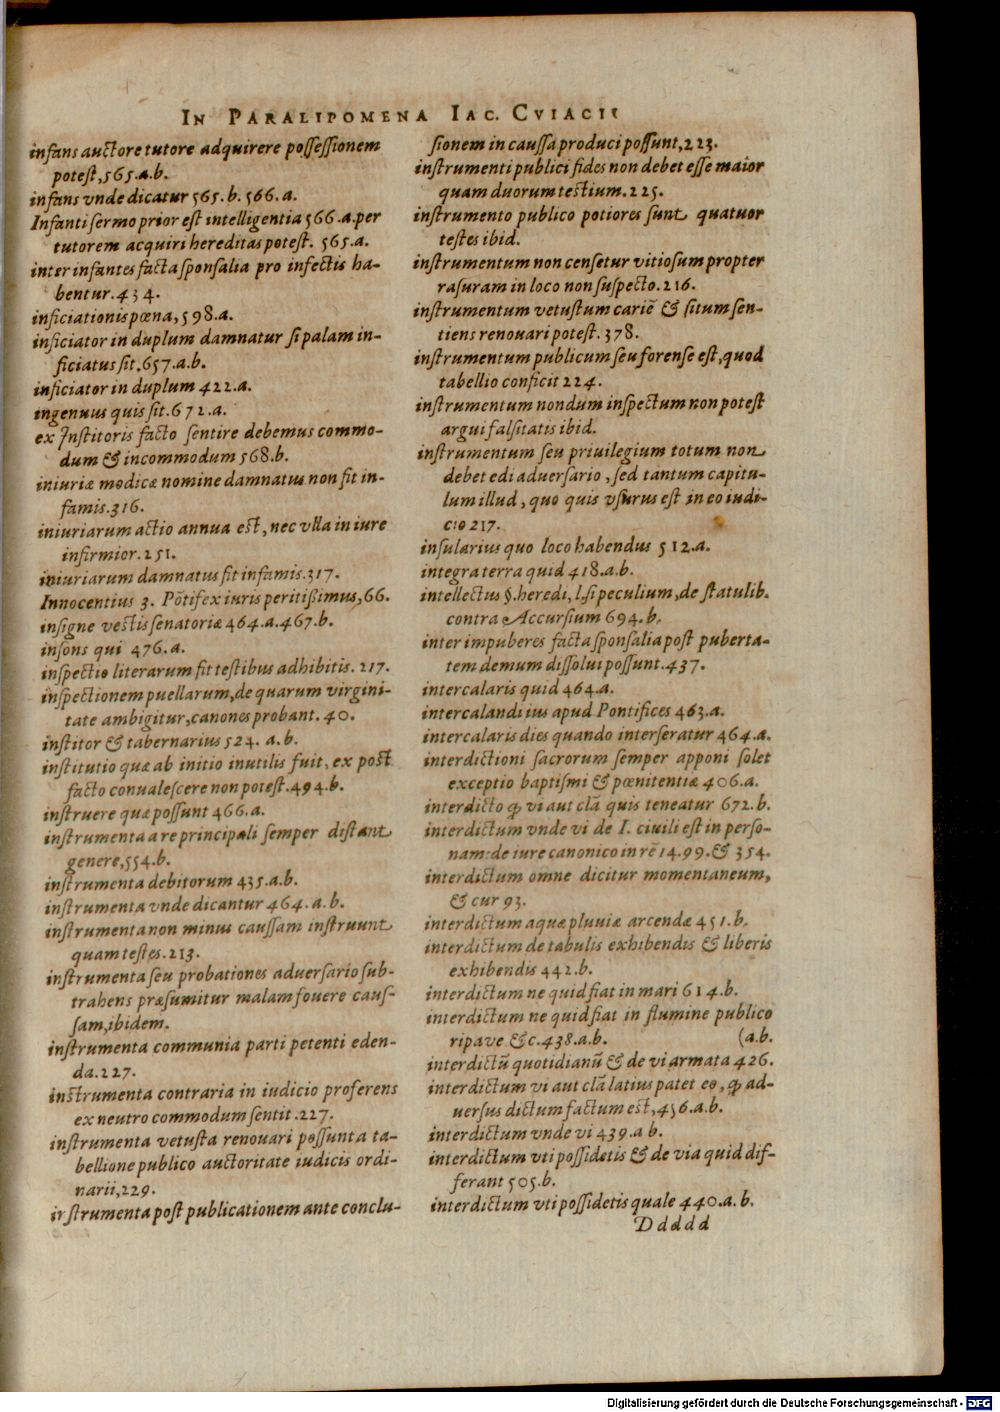 IN PARALIPOMENA IAC. CVIACII
infans auctore tutore adquirere possessionem
potest, 565.a.b.
infans vnde dicatur 565. b. 566. a.
Infanti sermo prior est intelligentia 566 .a.per
tutorem acquiri hereditas potest. 565.a.
inter infantes facta sponsalia pro infectis ha-
bentur. 434.
inficiationis pœna, 598.a.
inficiator in duplum damnatur si palam in-
ficiatus sit. 657.a.b.
inficiator in duplum 422.a.
ingenuus quis sit. 672.a.
ex Institoris facto sentire debemus commo-
dum & incommodum 568.b.
iniuriæ modicæ nomine damnatus non fit in-
famis. 316.
iniuriarum actio annua est, nec vlla in iure
infirmior. 251.
iniuriarum damnatus fit infamis. 317.
Innocentius 3. Põtifex iuris peritißimus, 66.
insigne vestis senatoriæ 464.a.467.b.
insons qui 476.a.
inspectio literarum fit testibus adhibitis. 217.
inspectionem puellarum, de quarum virgini-
tate ambigitur, canones probant. 40.
institor & tabernarius 524. a.b.
institutio quæ ab initio inutilis fuit, ex post
facto conualescere non potest. 494.b.
instruere quæ possunt 466.a.
instrumenta a re principali semper distant
genere, 554.b.
instrumenta debitorum 435.a.b.
instrumenta vnde dicantur 464. a.b.
instrumenta non minus caussam instruunt
quam testes. 213.
instrumenta seu probationes aduersario sub-
trahens præsumitur malam fouere caus-
sam, ibidem.
instrumenta communia parti petenti eden-
da. 227.
instrumenta contraria in iudicio proferens
ex neutro commodum sentit. 227.
instrumenta vetusta renouari possunt a ta-
bellione publico auctoritate iudicis ordi-
narii, 229.
instrumenta post publicationem ante conclu-
sionem in caussa produci possunt, 223.
instrumenti publici fides non debet esse maior
quam duorum testium. 225.
instrumento publico potiores sunt quatuor
testes ibid.
instrumentum non censetur vitiosum propter
rasuram in loco non suspecto. 216.
instrumentum vetustum cariẽ & situm sen-
tiens renouari potest. 378.
instrumentum publicum seu forense est, quod
tabellio conficit 224.
instrumentum nondum inspectum non potest
argui falsitatis ibid.
instrumentum seu priuilegium totum non
debet edi aduersario, sed tantum capitu-
lum illud, quo quis vsurus est in eo iudi-
cio 217.
insularius quo loco habendus 512.a.
integra terra quid 418.a.b.
intellectus §. heredi, l. si peculium, de statulib.
contra Accursium 694.b.
inter impuberes facta sponsalia post puberta-
tem demum dissolui possunt. 437.
intercalaris quid 464.a.
intercalandi ius apud Pontifices 463.a.
intercalaris dies quando interseratur 464.a.
interdictioni sacrorum semper apponi solet
exceptio baptismi & pœnitentiæ 406.a.
interdicto ꝙ vi aut clã quis teneatur 672.b.
interdictum vnde vi de I. ciuili est in perso-
nam: de iure canonico in rẽ 14.99. & 354.
interdictum omne dicitur momentaneum,
& cur 93.
interdictum aquæ pluuiæ arcendæ 451.b.
interdictum de tabulis exhibendis & liberis
exhibendis 442.b.
interdictum ne quid fiat in mari 614.b.
interdictum ne quid fiat in flumine publico
ripave &c. 438.a.b. (a.b.
interdictũ quotidianũ & de vi armata 426.
interdictum vi aut clã latius patet eo, ꝙ ad-
uersus dictum factum est, 456.a.b.
interdictum vnde vi 439.a b.
interdictum vti possidetis & de via quid dif-
ferant 505.b.
interdictum vti possidetis quale 440.a.b.
Ddddd
Digitalisierung gefördert durch die Deutsche Forschungsgemeinschaft - DFG